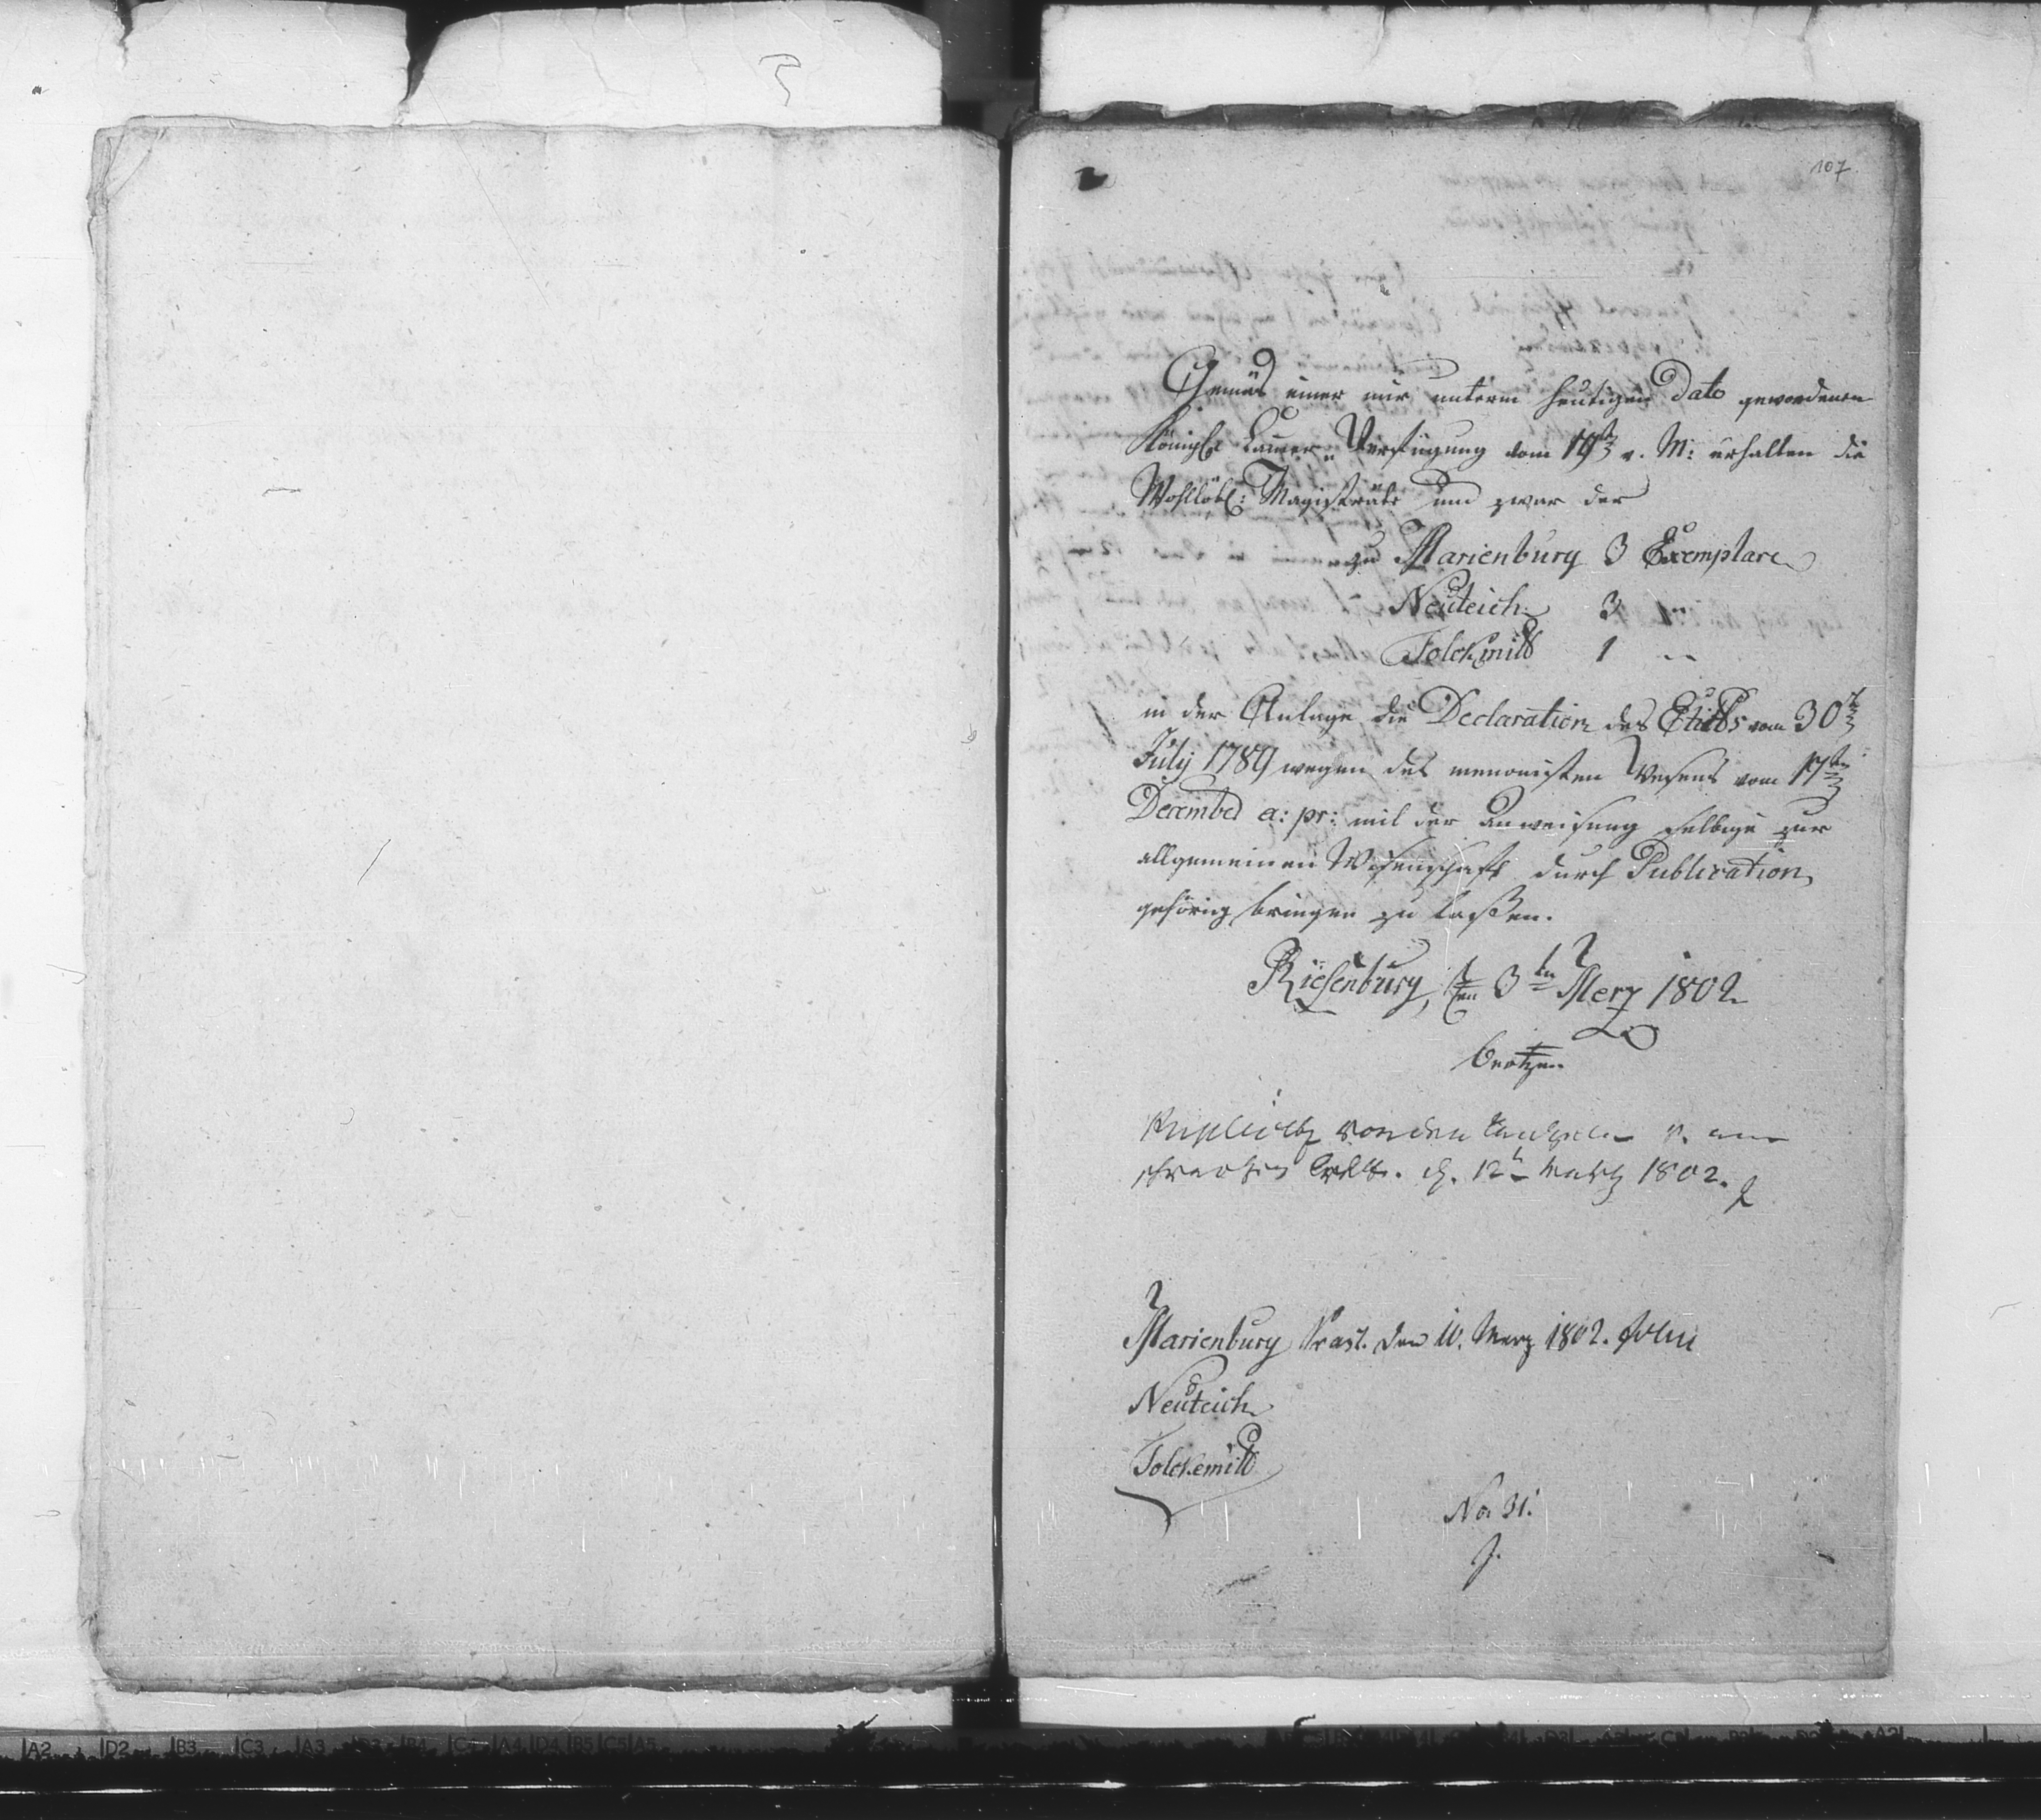 107
Gemäs einer mir unterm heutigen Dato gewordenen
Königl Camer Verfügung vom 19t v. M: erhalten die
Wohllöbl: Magisträte und zwar der
zu Marienburg 3 Exemplare
Neuteich 3 "
Tolckmitt 1 "
in der Anlage die Declaration des Edicts vom 30t
July 1789 wegen des menonisten Wesens vom 17ten
December a: pr: mit der Anweisung selbige zur
allgemeinen Wißenschaft durch Publication
gehörig bringen zu laßen.
Riesenburg, den 3ten Merz 1802
von den
12t Martz 1802.
Marienburg Præs. den 10. Merz 1802.
Neuteich
Tolckemitt
No 31.